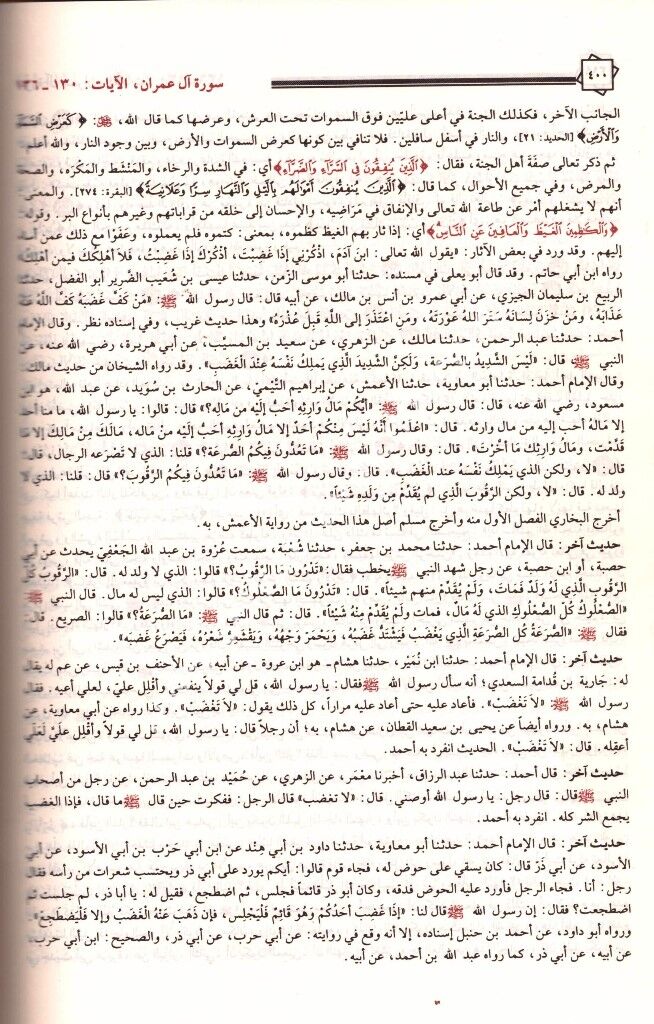 ٤٠٠
سورة آل عمران، الآيات: ١٣٠ ـ ١٣٦
الجانب الآخر، فكذلك الجنة في أعلى عليّين فوق السموات تحت العرش، وعرضها كما قال الله، ﷻ: ﴿كَعَرْضِ السَّمَآءِ
وَالْأَرْضِ﴾ [الحديد: ٢١]، والنار في أسفل سافلين. فلا تنافي بين كونها كعرض السموات والأرض، وبين وجود النار، والله أعلم.
ثم ذكر تعالى صفَة أهل الجنة، فقال: ﴿الَّذِينَ يُنفِقُونَ فِي السَّرَّآءِ وَالضَّرَّآءِ﴾ أي: في الشدة والرخاء، والمَنْشَط والمَكْرَه، والصحة
والمرض، وفي جميع الأحوال، كما قال: ﴿الَّذِينَ يُنفِقُونَ أَمْوَالَهُم بِالَّيْلِ وَالنَّهَارِ سِرًّا وَعَلَانِيَةً﴾ [البقرة: ٢٧٤]. والمعنى:
أنهم لا يشغلهم أمْر عن طاعة الله تعالى والإنفاق في مَرَاضِيه، والإحسان إلى خلقه من قراباتهم وغيرهم بأنواع البر. وقوله:
﴿وَالْكَاظِمِينَ الْغَيْظَ وَالْعَافِينَ عَنِ النَّاسِ﴾ أي: إذا ثار بهم الغيظ كظموه، بمعنى: كتموه فلم يعملوه، وعَفَوْا مع ذلك عمن أساء
إليهم. وقد ورد في بعض الآثار: «يقول الله تعالى: ابنَ آدَمَ، اذْكُرْنِي إذَا غَضِبْتَ، أَذْكُرْكَ إذَا غَضِبْتُ، فَلاَ أهْلِكُكَ فيمن أهْلِكُ»
رواه ابن أبي حاتم. وقد قال أبو يعلى في مسنده: حدثنا أبو موسى الزّمن، حدثنا عيسى بن شُعَيب الضَّرير أبو الفضل، حدثنا
الربيع بن سليمان الجيزي، عن أبي عمرو بن أنس بن مالك، عن أبيه قال: قال رسول الله ﷺ: «مَنْ كَفَّ غَضَبَهُ كَفَّ اللَّهُ عَنْهُ
عَذَابَهُ، وَمَنْ خزَنَ لِسَانَهُ سَتَرَ اللهُ عَوْرَتَهُ، وَمَنِ اعْتَذَرَ إلَى اللَّهِ قَبِلَ عُذْرَهُ» وهذا حديث غريب، وفي إسناده نظر. وقال الإمام
أحمد: حدثنا عبد الرحمن، حدثنا مالك، عن الزهري، عن سعيد بن المسيب، عن أبي هريرة، رضي الله عنه، عن
النبي ﷺ قال: «لَيْسَ الشَّدِيدُ بِالصُّرَعة، وَلَكِنَّ الشَّدِيدَ الَّذِي يَملِكُ نَفْسَهُ عِنْدَ الْغَضَبِ». وقد رواه الشيخان من حديث مالك.
وقال الإمام أحمد: حدثنا أبو معاوية، حدثنا الأعمش، عن إبراهيم التَّيْمي، عن الحارث بن سُوَيد، عن عبد الله، هو ابن
مسعود، رضي الله عنه، قال: قال رسول الله ﷺ: «أيُّكُم مَالُ وَارِثِهِ أَحَبُّ إلَيْهِ مِن مَالِه؟» قال: قالوا: يا رسول الله، ما منا أحد
إلا مَالُهُ أحب إليه من مال وارثه. قال: «اعْلَمُوا أنَّهُ لَيْسَ مِنْكُم أحَدٌ إلاَّ مَالُ وَارِثِهِ أحَبُّ إلَيْهِ مِنْ مَاله، مَالَكَ مِنْ مَالِكَ إلاَّ مَا
قَدَّمْتَ، وَمَالُ وَارِثِكَ مَا أخَّرْتَ». قال: وقال رسول الله ﷺ: «مَا تَعُدُّونَ فِيكُمُ الصُّرَعَة؟» قلنا: الذي لا تَصْرَعه الرجال، قال:
قال: «لا، ولكن الذي يَمْلِكُ نَفْسَهُ عند الْغَضَبِ». قال: وقال رسول الله ﷺ: «مَا تَعُدُّونَ فِيكُمُ الرَّقُوبَ؟» قال: قلنا: الذي لا
ولد له. قال: «لا، ولكن الرَّقُوبَ الَّذِي لم يُقَدِّمْ مِن وَلَدِهِ شَيْئاً».
أخرج البخاري الفصل الأول منه وأخرج مسلم أصل هذا الحديث من رواية الأعمش، به.
حديث آخر: قال الإمام أحمد: حدثنا محمد بن جعفر، حدثنا شُعْبة، سمعت عُرْوة بن عبد الله الجَعْفيّ يحدث عن أبي
حصبة، أو ابن حصبة، عن رجل شهد النبي ﷺ يخطب فقال: «تَدْرُونَ مَا الرَّقُوبُ؟» قالوا: الذي لا ولد له. قال: «الرَّقُوبُ كُلُّ
الرقوبِ الَّذِي لَهُ وَلَدٌ فَمَاتَ، وَلَمْ يُقَدِّمْ منهم شيئاً». قال: «تَدْرُونَ مَا الصُّعْلُوكُ؟» قالوا: الذي ليس له مال. قال النبي ﷺ:
«الصُّعْلُوكُ كُلّ الصُّعْلوك الَّذي لَهُ مَالٌ، فمات وَلَمْ يُقَدِّمْ مِنْهُ شَيْئاً». قال: ثم قال النبي ﷺ: «مَا الصُّرَعَةُ؟» قالوا: الصريع. قال:
فقال ﷺ: «الصُّرَعَةُ كُل الصُّرَعَةِ الَّذِي يَغْضَب فَيَشْتَدُّ غَضَبُهُ، وَيَحْمَر وَجْهُهُ، وَيَقْشَعِرُّ شَعْرُهُ، فَيَصْرَعُ غضبه».
حديث آخر: قال الإمام أحمد: حدثنا ابن نُمَيْر، حدثنا هشام ـ هو ابن عروة ـ عن أبيه، عن الأحنف بن قيس، عن عم له يقال
له: جَارية بن قُدامة السعدي؛ أنه سأل رسول الله ﷺ فقال: يا رسول الله، قل لي قولاً ينفعني وأقْلِل عليّ، لعلي أعيه. فقال
رسول الله ﷺ: «لاَ تَغْضَبْ». فأعاد عليه حتى أعاد عليه مراراً، كل ذلك يقول: «لاَ تَغْضَبْ». وكذا رواه عن أبي معاوية، عن
هشام، به. ورواه أيضاً عن يحيى بن سعيد القطان، عن هشام، به؛ أن رجلاً قال: يا رسول الله، قل لي قولاً وأقْلِل عليَّ لَعَلِّي
أعقِله. قال: «لاَ تَغْضَبْ». الحديث انفرد به أحمد.
حديث آخر: قال أحمد: حدثنا عبد الرزاق، أخبرنا معْمَر، عن الزهري، عن حُمَيْد بن عبد الرحمن، عن رجل من أصحاب
النبي ﷺ قال: قال رجل: يا رسول الله أوصني. قال: «لا تغضب» قال الرجل: ففكرت حين قال ﷺ ما قال، فإذا الغضب
يجمع الشر كله. انفرد به أحمد.
حديث آخر: قال الإمام أحمد: حدثنا أبو معاوية، حدثنا داود بن أبي هِنْد عن ابن أبي حَرْب بن أبي الأسود، عن أبي
الأسود، عن أبي ذَرّ قال: كان يسقي على حوض له، فجاء قوم قالوا: أيكم يورد على أبي ذر ويحتسب شعرات من رأسه فقال
رجل: أنا. فجاء الرجل فأورد عليه الحوض فدقه، وكان أبو ذر قائماً فجلس، ثم اضطجع، فقيل له: يا أبا ذر، لم جلست ثم
اضطجعت؟ فقال: إن رسول الله ﷺ قال لنا: «إذَا غَضِبَ أحَدُكُمْ وَهُوَ قَائِمٌ فَلْيَجْلِس، فإن ذَهَبَ عَنْهُ الْغَضَبُ وإلا فَلْيَضْطَجِعْ».
ورواه أبو داود، عن أحمد بن حنبل إسناده، إلا أنه وقع في روايته: عن أبي حرب، عن أبي ذر، والصحيح: ابن أبي حرب،
عن أبيه، عن أبي ذر، كما رواه عبد الله بن أحمد، عن أبيه.